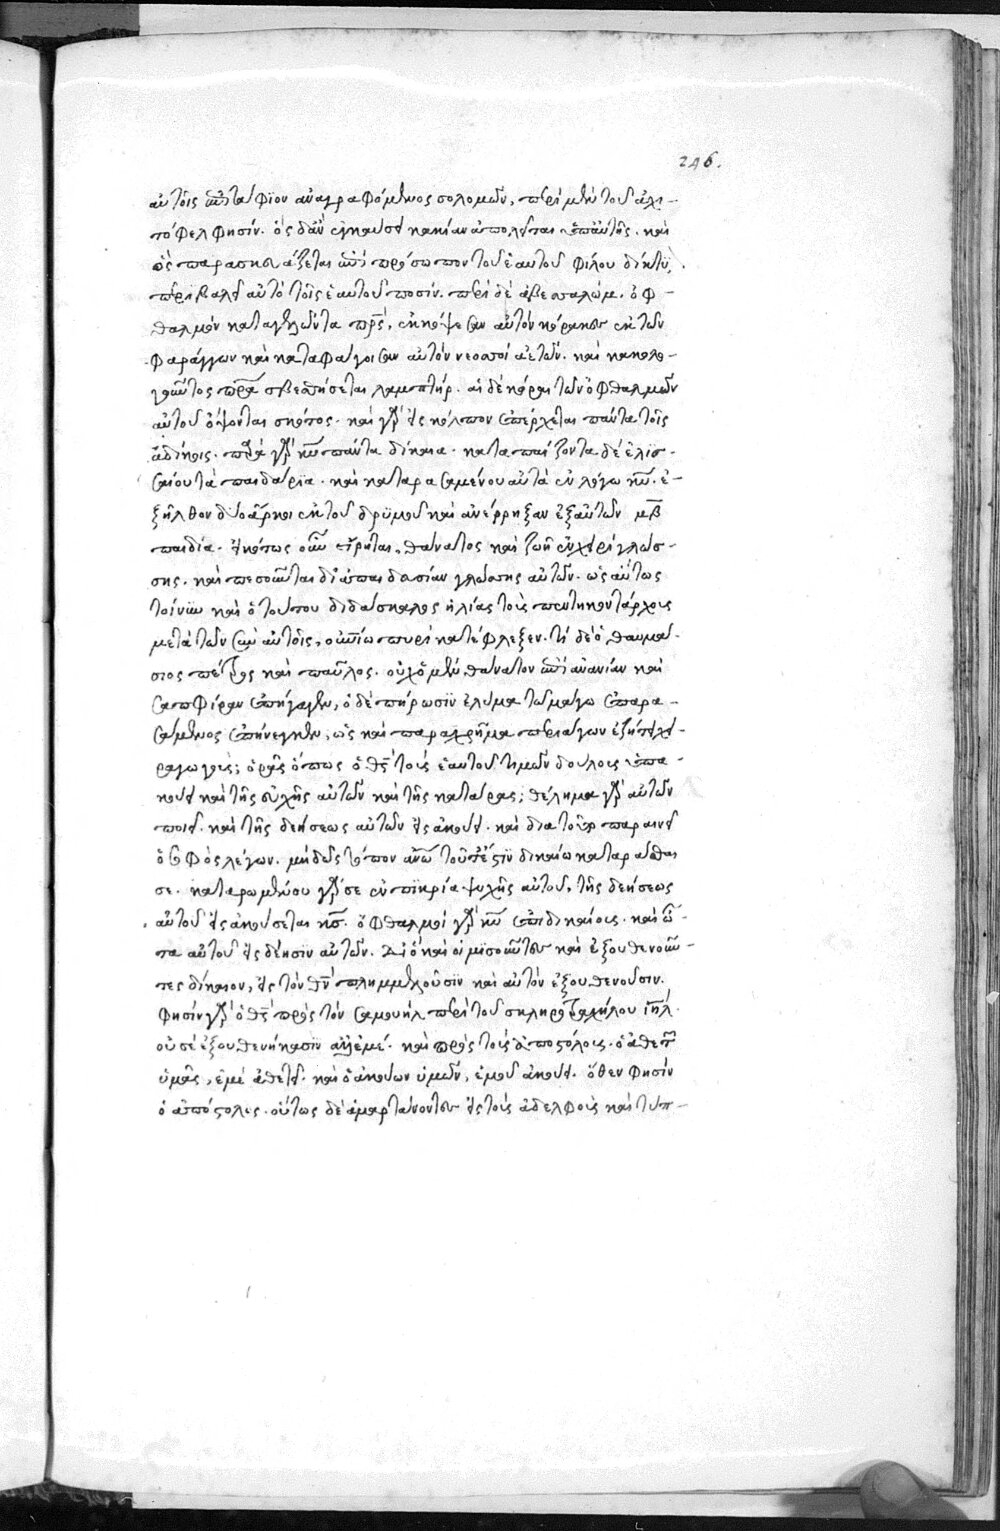 246.
αὐτοῖς ἐπιτάφϊον ἀναγραφόμενος σολομῶν, περὶ μὲν τοῦ ἀχι-
τόφελ φησίν. ὃς δ' ἂν ἐγκαύσει κακίαν ἀπολεῖται ὑπ' αὐτῆς. καὶ
ὃς παρασκευάζεται ἐπὶ πρόσωπον τοῦ ἑαυτοῦ φίλου δίκτυ,
περιβαλεῖ αὐτὸ τοῖς ἑαυτοῦ ποσίν. περὶ δὲ ἀβεσαλώμ. ὀφ-
θαλμὸν καταγελῶντα πρς, ἐκκόψειαν αὐτὸν κόρακες ἐκ τῶν
φαράγγων καὶ καταφάγοισαν αὐτὸν νεοσσοὶ ἀετῶν. καὶ κακολο-
γοῦντος πρα σβεσθήσεται λαμπτήρ. αἱ δὲ κόραι τῶν ὀφθαλμῶν
αὐτοῦ ὄψονται σκότος. καὶ γὰρ εἰς κόλπον ἐπέρχεται πάντα τοῖς
ἀδίκοις. παρὰ γὰρ κυ πάντα δίκαια. καταπαίζοντα δὲ ἐλισ-
σαίου τὰ παιδάρϊα. καὶ καταρασαμένου αὐτὰ ἐν λόγω κυ. ἐ-
ξῆλθον δύο ἄρκοι ἐκ τοῦ δρϋμοῦ καὶ ἀνέρρηξαν ἐξ αὐτῶν μβ
παιδία. εἰκότως οὖν εἴρηται, θάνατος καὶ ζωὴ ἐν χειρὶ γλώσ-
σης. καὶ πεσοῦνται δι' ἀπαιδασίαν γλώσσης αὐτῶν. ὡσαύτως
τοίνυν καὶ ὁ τούτου διδάσκαλος ἠλίας τοὺς πεντηκοντάρχους
μετὰ τῶν σὺν αὐτοῖς, οὐνίω πυρὶ κατέφλεξεν. τί δὲ ὁ θαυμά-
σιος πέτρος καὶ παῦλος. οὐχ' ὁ μὲν, θάνατον ἐπὶ ἀνανίαν καὶ
σαπφίραν ἐπήγαγεν, ὁ δὲ πήρωσϊν ἐλύμα τῶ μάγω ἐπαρα-
σάμενος ἐπήνεγκεν, ὡς καὶ παραχρῆμα περιάγων ἐζήτει χει-
ραγωγούς; ὁρᾶς ὅπως ὁ θς τοὺς ἑαυτοῦ τιμῶν δούλους ὑπα-
κούει καὶ τῆς εὐχῆς αὐτῶν καὶ τῆς κατάρας; θέλημα γὰρ αὐτῶν
ποιεῖ. καὶ τῆς δεήσεως αὐτῶν εἰσακούει. καὶ διατοῦτο παραινεῖ
ὁ σοφὸς λέγων. μὴ δῶς τόπον ἀνω τοῦ ἐστὶν δικαίω καταρᾶσθαι
σε. καταρωμένου γὰρ σε ἐν πϊκρία ψυχῆς αὐτοῦ, τῆς δεήσεως
αὐτοῦ εἰσακούσεται κς. ὀφθαλμοὶ γὰρ κυ ἐπὶ δικαίους. καὶ ὦ-
τα αὐτοῦ εἰς δέησιν αὐτῶν. Διὸ καὶ οἱ μϊσοῦντες καὶ ἐξουθενοῦν-
τες δίκαιον, εἰς τὸν θν πλημμελοῦσϊν καὶ αὐτὸν ἐξουθενοῦσιν.
φησὶν γὰρ ὁ θς πρὸς τὸν σαμουὴλ περὶ τοῦ σκληροτραχήλου ιηλ.
οὐ σὲ ἐξουθενήκασϊν ἀλλ' ἐμέ. καὶ πρὸς τοὺς ἀποστόλους. ὁ ἀθετῶν
ὑμᾶς, ἐμὲ ἀθετεῖ. καὶ ὁ ἀκούων ὑμῶν, ἐμοῦ ἀκούει. ὅθεν φησὶν
ὁ ἀπόστολος. οὕτως δὲ ἁμαρτάνοντες εἰς τοὺς ἀδελφοὺς καὶ τύπ-